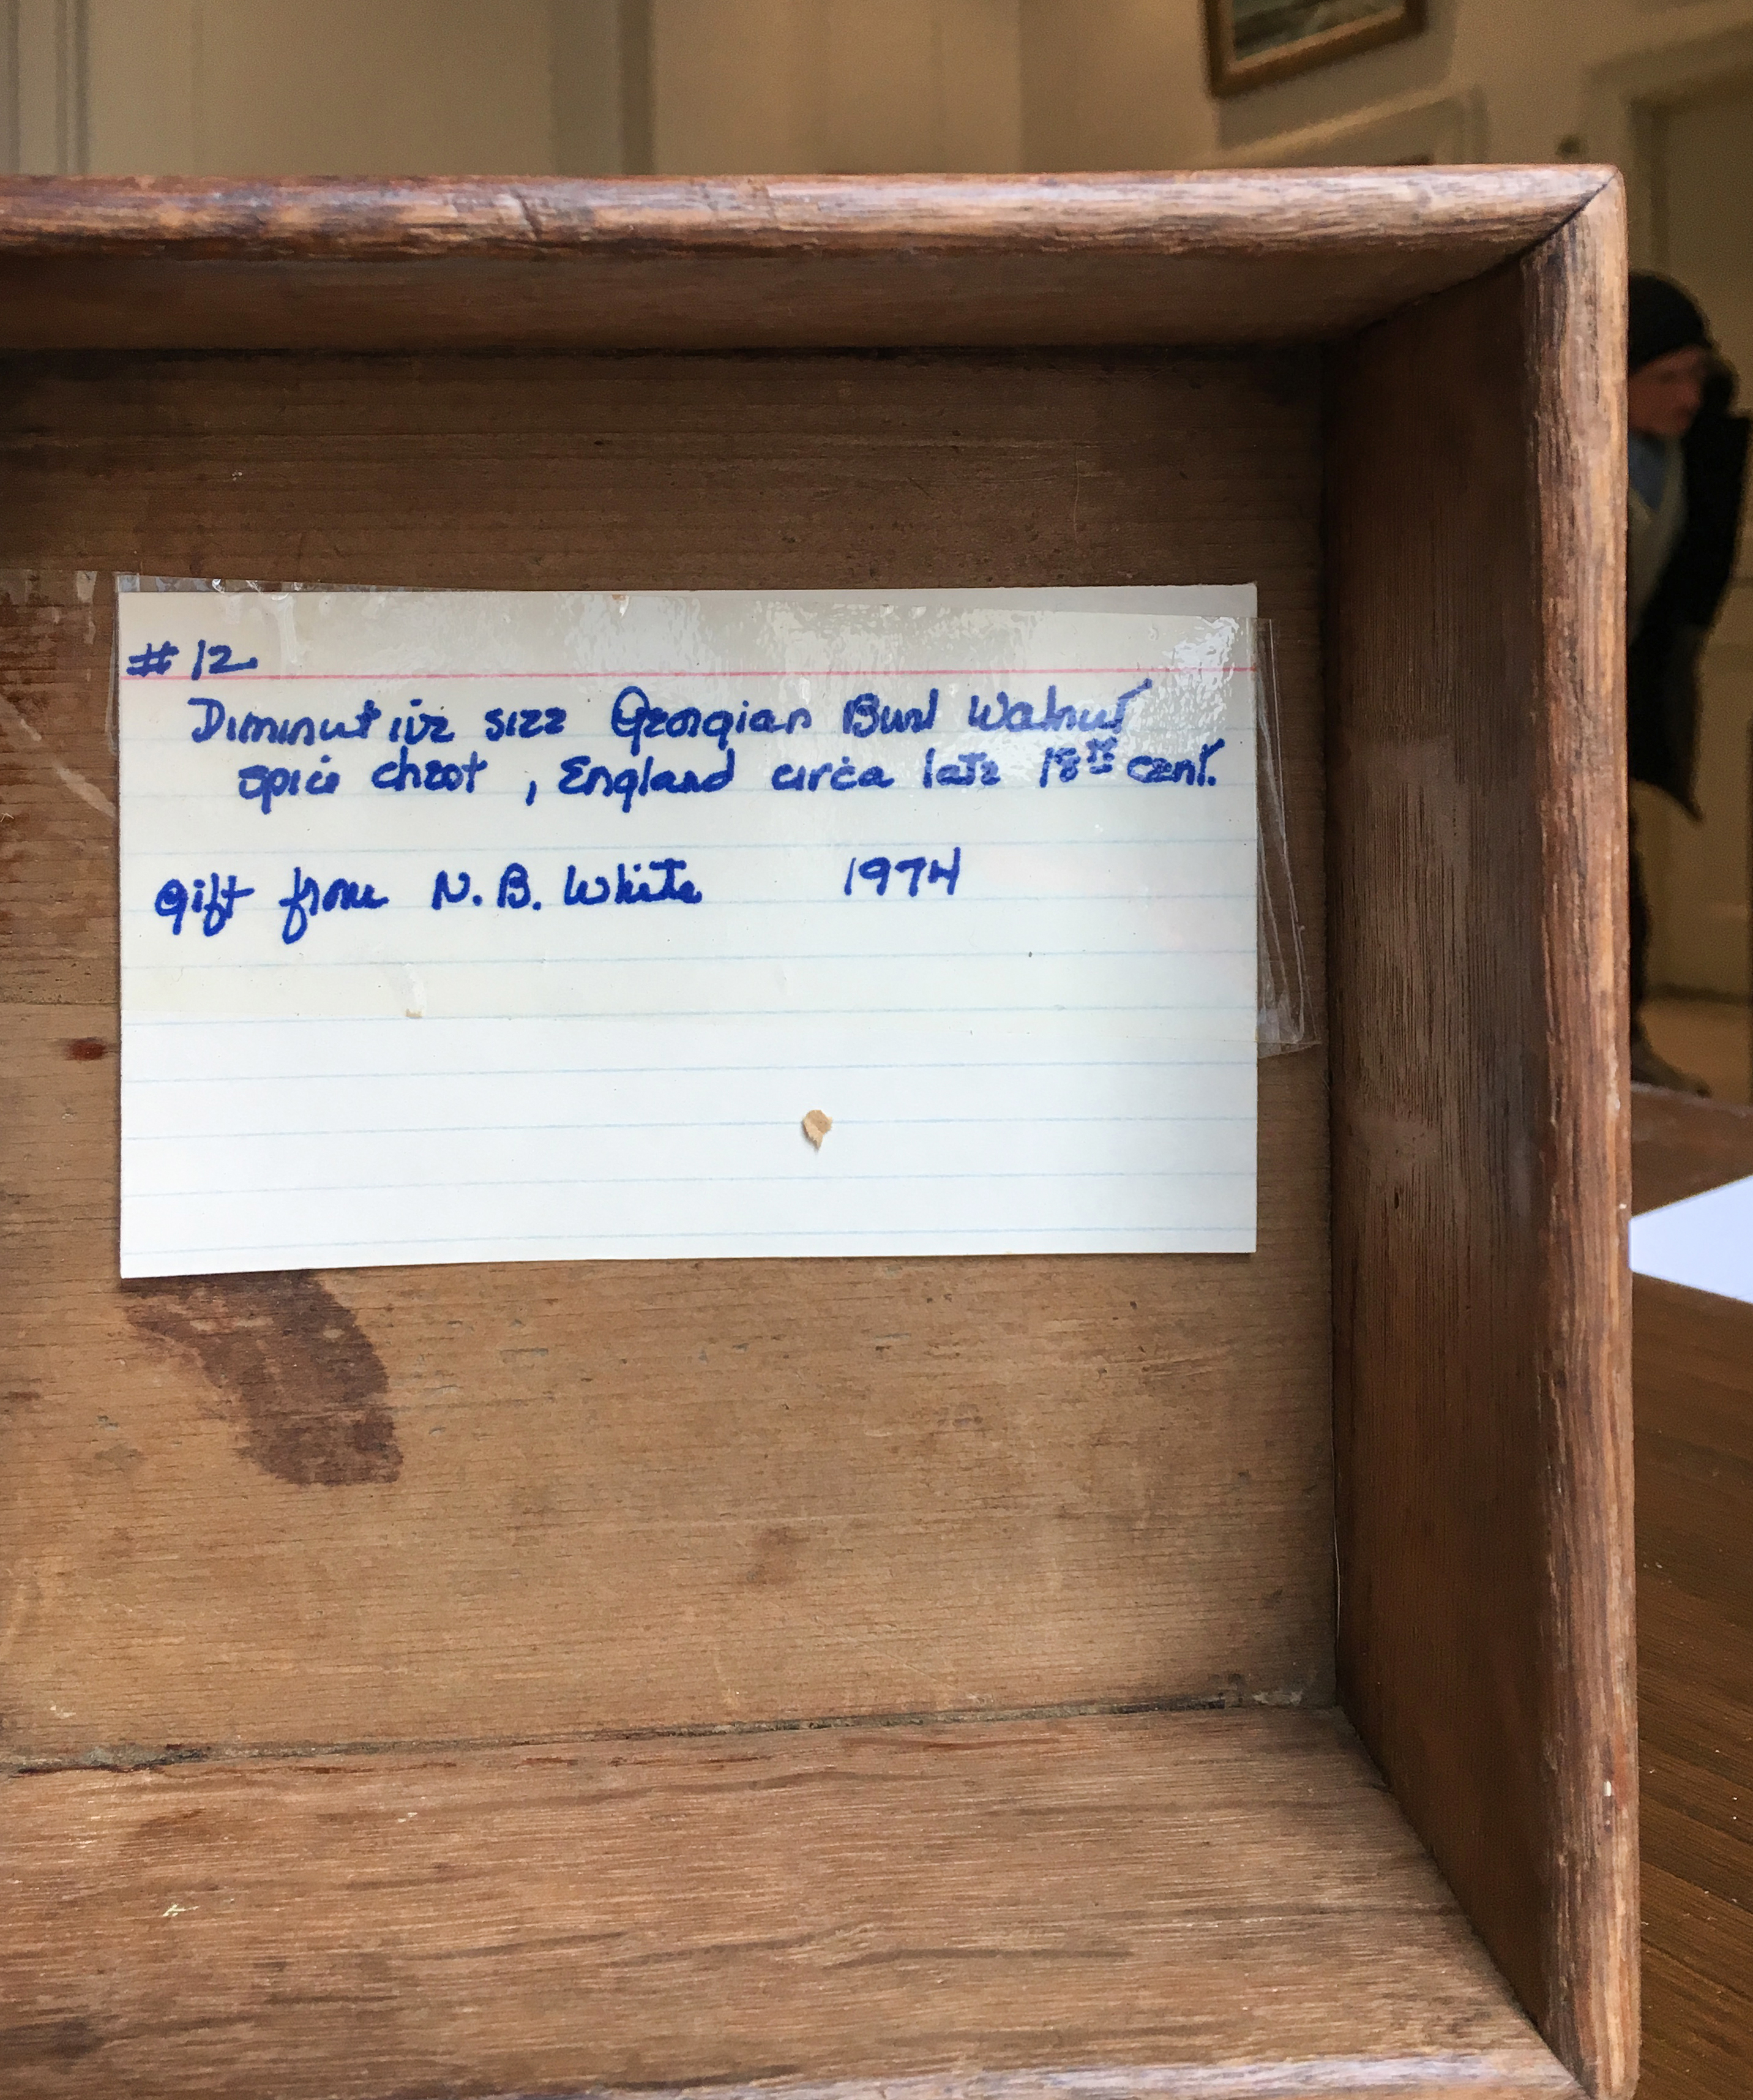 #12
Diminutive size Georgian Burl Walnut
spice chest, England circa late 18th cent.
Gift from N. B. White 1974